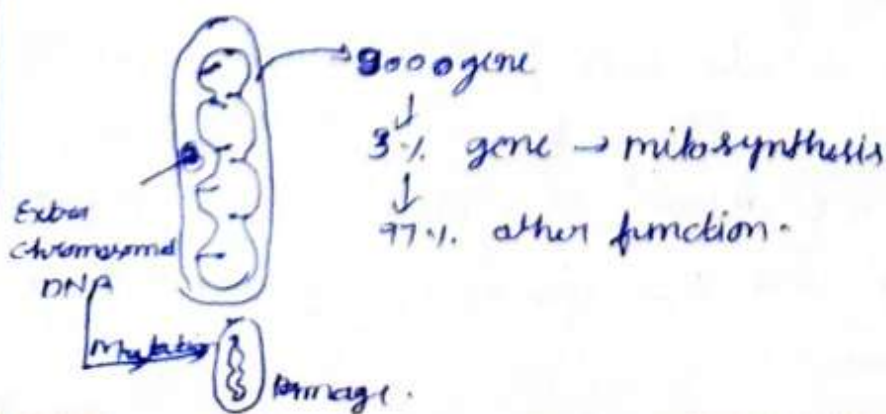 9000 gene
3% gene → mitosynthesis
97% other function.
Extra
Chromosomal
DNA
Mutation
Damage.